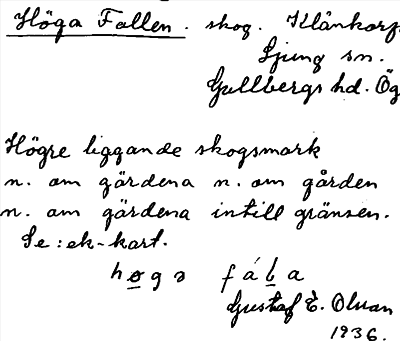 Höga Fallen. skog. Klänkorp
Ljung sn.
Gullbergs hd. Ög
Högre liggande skogsmark
n. om gärdena n. om gården
n. om gärdena intill gränsen.
Se: ek-kart.
høgə fába
Gustaf E. Olsson
1936.